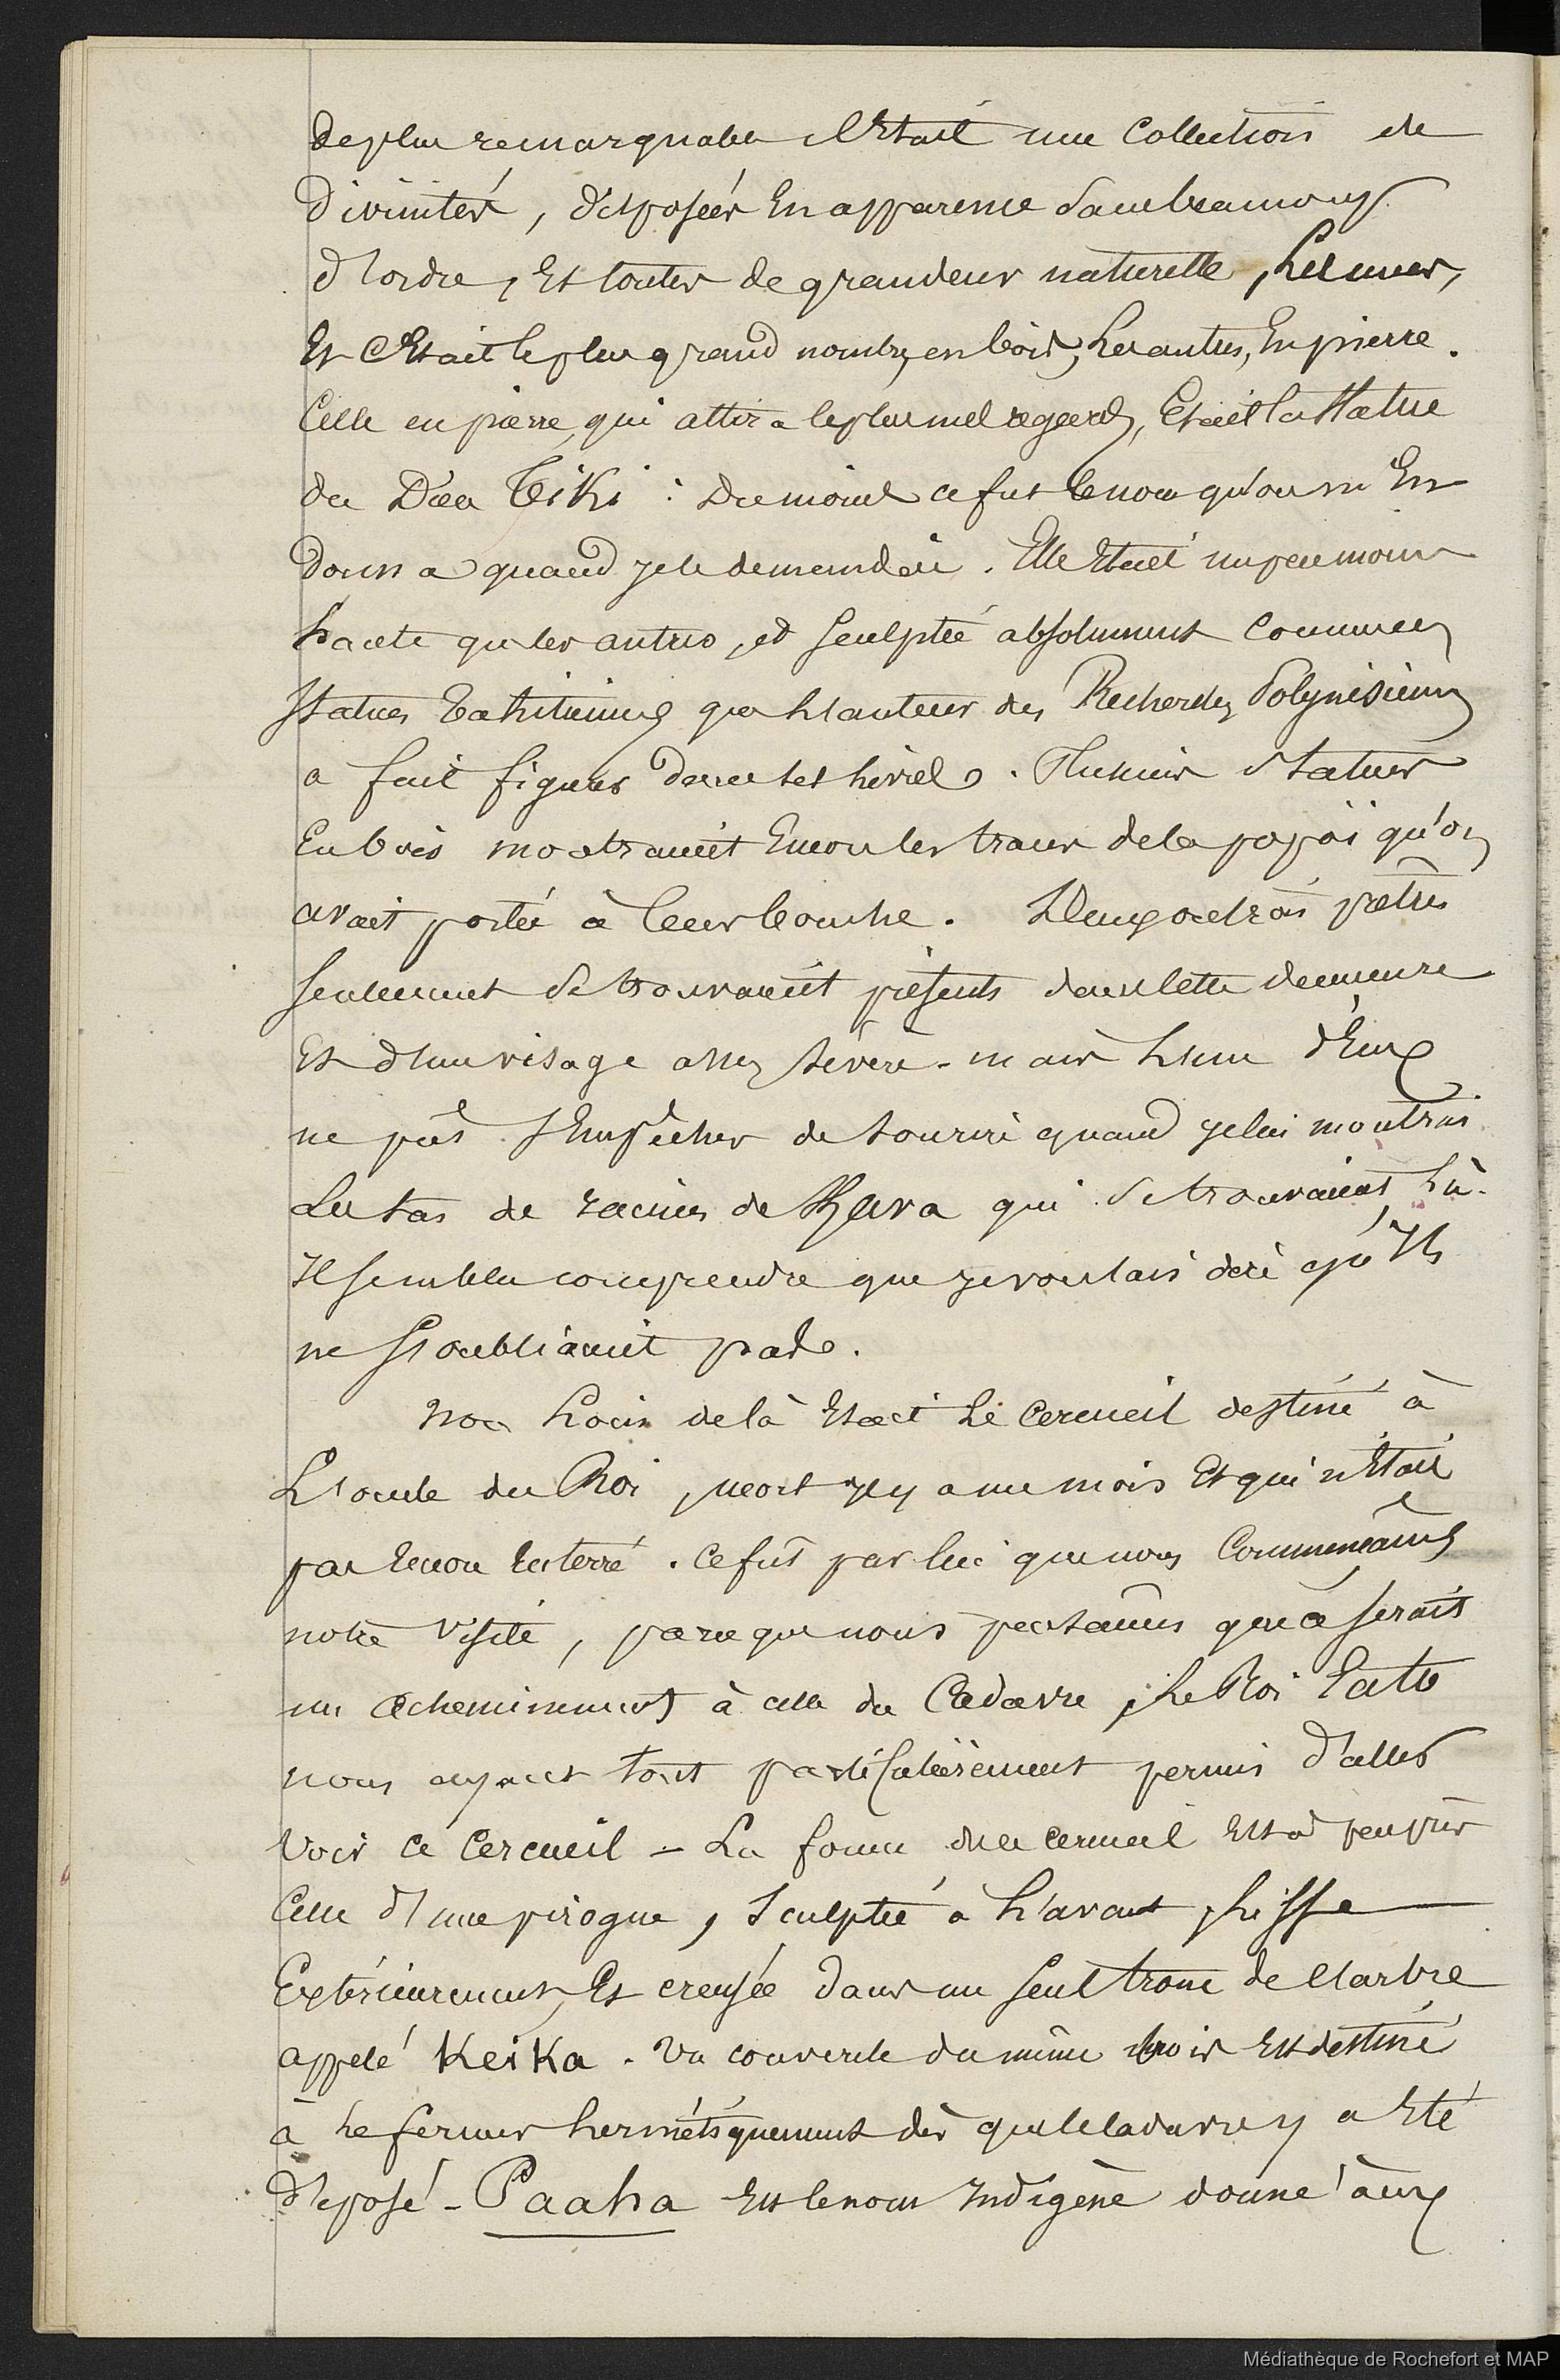 de plus remarquable c'était une Collection de
Divinités, disposées En apparence sans beaucoup
d'ordre, Et toutes de grandeur naturelle, Les unes,
Et C'Etait le plus grand nombre, en bois, Les autres, En pierre.
Celle en pierre, qui attira le plus mes regards, Etait la Statue
du Dieu Tiki : Du moins ce fut le nom qu'on m'En
donna quand je le demandai. Elle Etait un peu moins
haute que les autres, et sculptée absolument comme les
Statues Tahitiennes que L'auteur des Recherches Polynésiennes
a fait figurer dans ses livres. Plusieurs Statues
En bois montraient Encore les traces de la popoï qu'on
avait portée à leur bouche. Deux ou trois prêtres
seulement se trouvaient présents dans cette demeure
Et d'un visage assez sévère - mais L'un d'Eux
ne put s'Empêcher de sourire quand je lui montrai
Le tas de racines de Kava qui se trouvaient Là.
Il sembla comprendre que je voulais dire qu'Ils
ne s'oubliaient pas.
Non Loin de là Etait Le Cercueil destiné à
L'oncle du Roi, mort il y a un mois Et qui n'Etait
pas Encore Enterré. Ce fut par lui que nous Commençâmes
notre visite, parce que nous pensâmes que ce serait
un acheminement à celle du Cadavre, Le Roi
nous ayant tout particulièrement permis d'aller
voir ce Cercueil - La forme de ce cercueil Est à peu près
Celle d'une pirogue, Sculptée à L'avant, Lisse
Extérieurement, Et creusée dans un seul tronc de l'arbre
appelé Keika. Un couvercle du même bois Est destiné
à Le fermer hermétiquement dès que le cadavre y a Eté
déposé - Paaha Est le nom Indigène donné aux